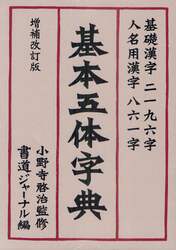 基礎漢字 二一九六字
人名用漢字 八六一字
基本五体字典
増補改訂版
小野寺啓治監修
書道ジャーナル編